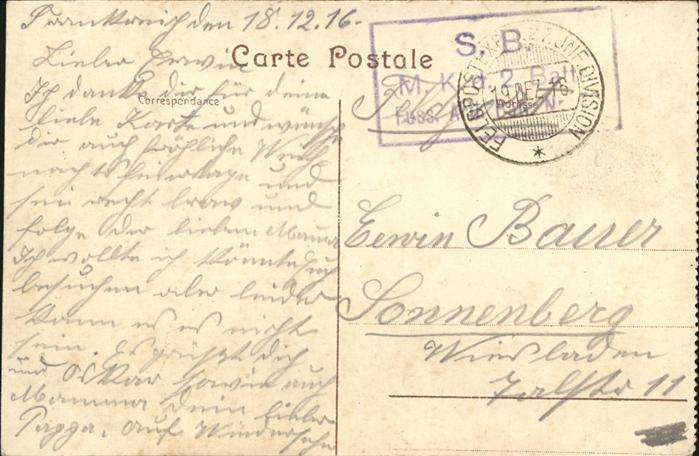 Frankreich den 18.12.16.
Carte Postale
Correspondance
Adresse
Lieber Erwin
Ich danke dir für deine
liebe Karte und wünsche
dir auch fröhliche Weih
nachtsfeiertage und
sei recht brav und
folge der lieben Mama
Ich wollte ich könnte Euch
besuchen aber leider
kann es es nicht
sein. Es grüßt dich
und Oskar sowie auch
Mamma Dein lieber
Pappa. Auf Wiedersehn
S. B.
M. K. d. 2. Batl.
FUSS. A.
FELDPOST
DIVISION
19 DEZ 16
Feldpost
Erwin Bauer
Sonnenberg
Wiesbaden
Talstr 11